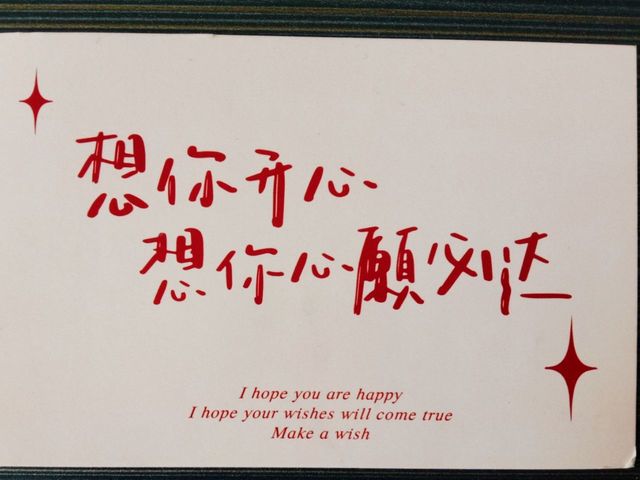 想你开心
想你心愿必达
I hope you are happy
I hope your wishes will come true
Make a wish